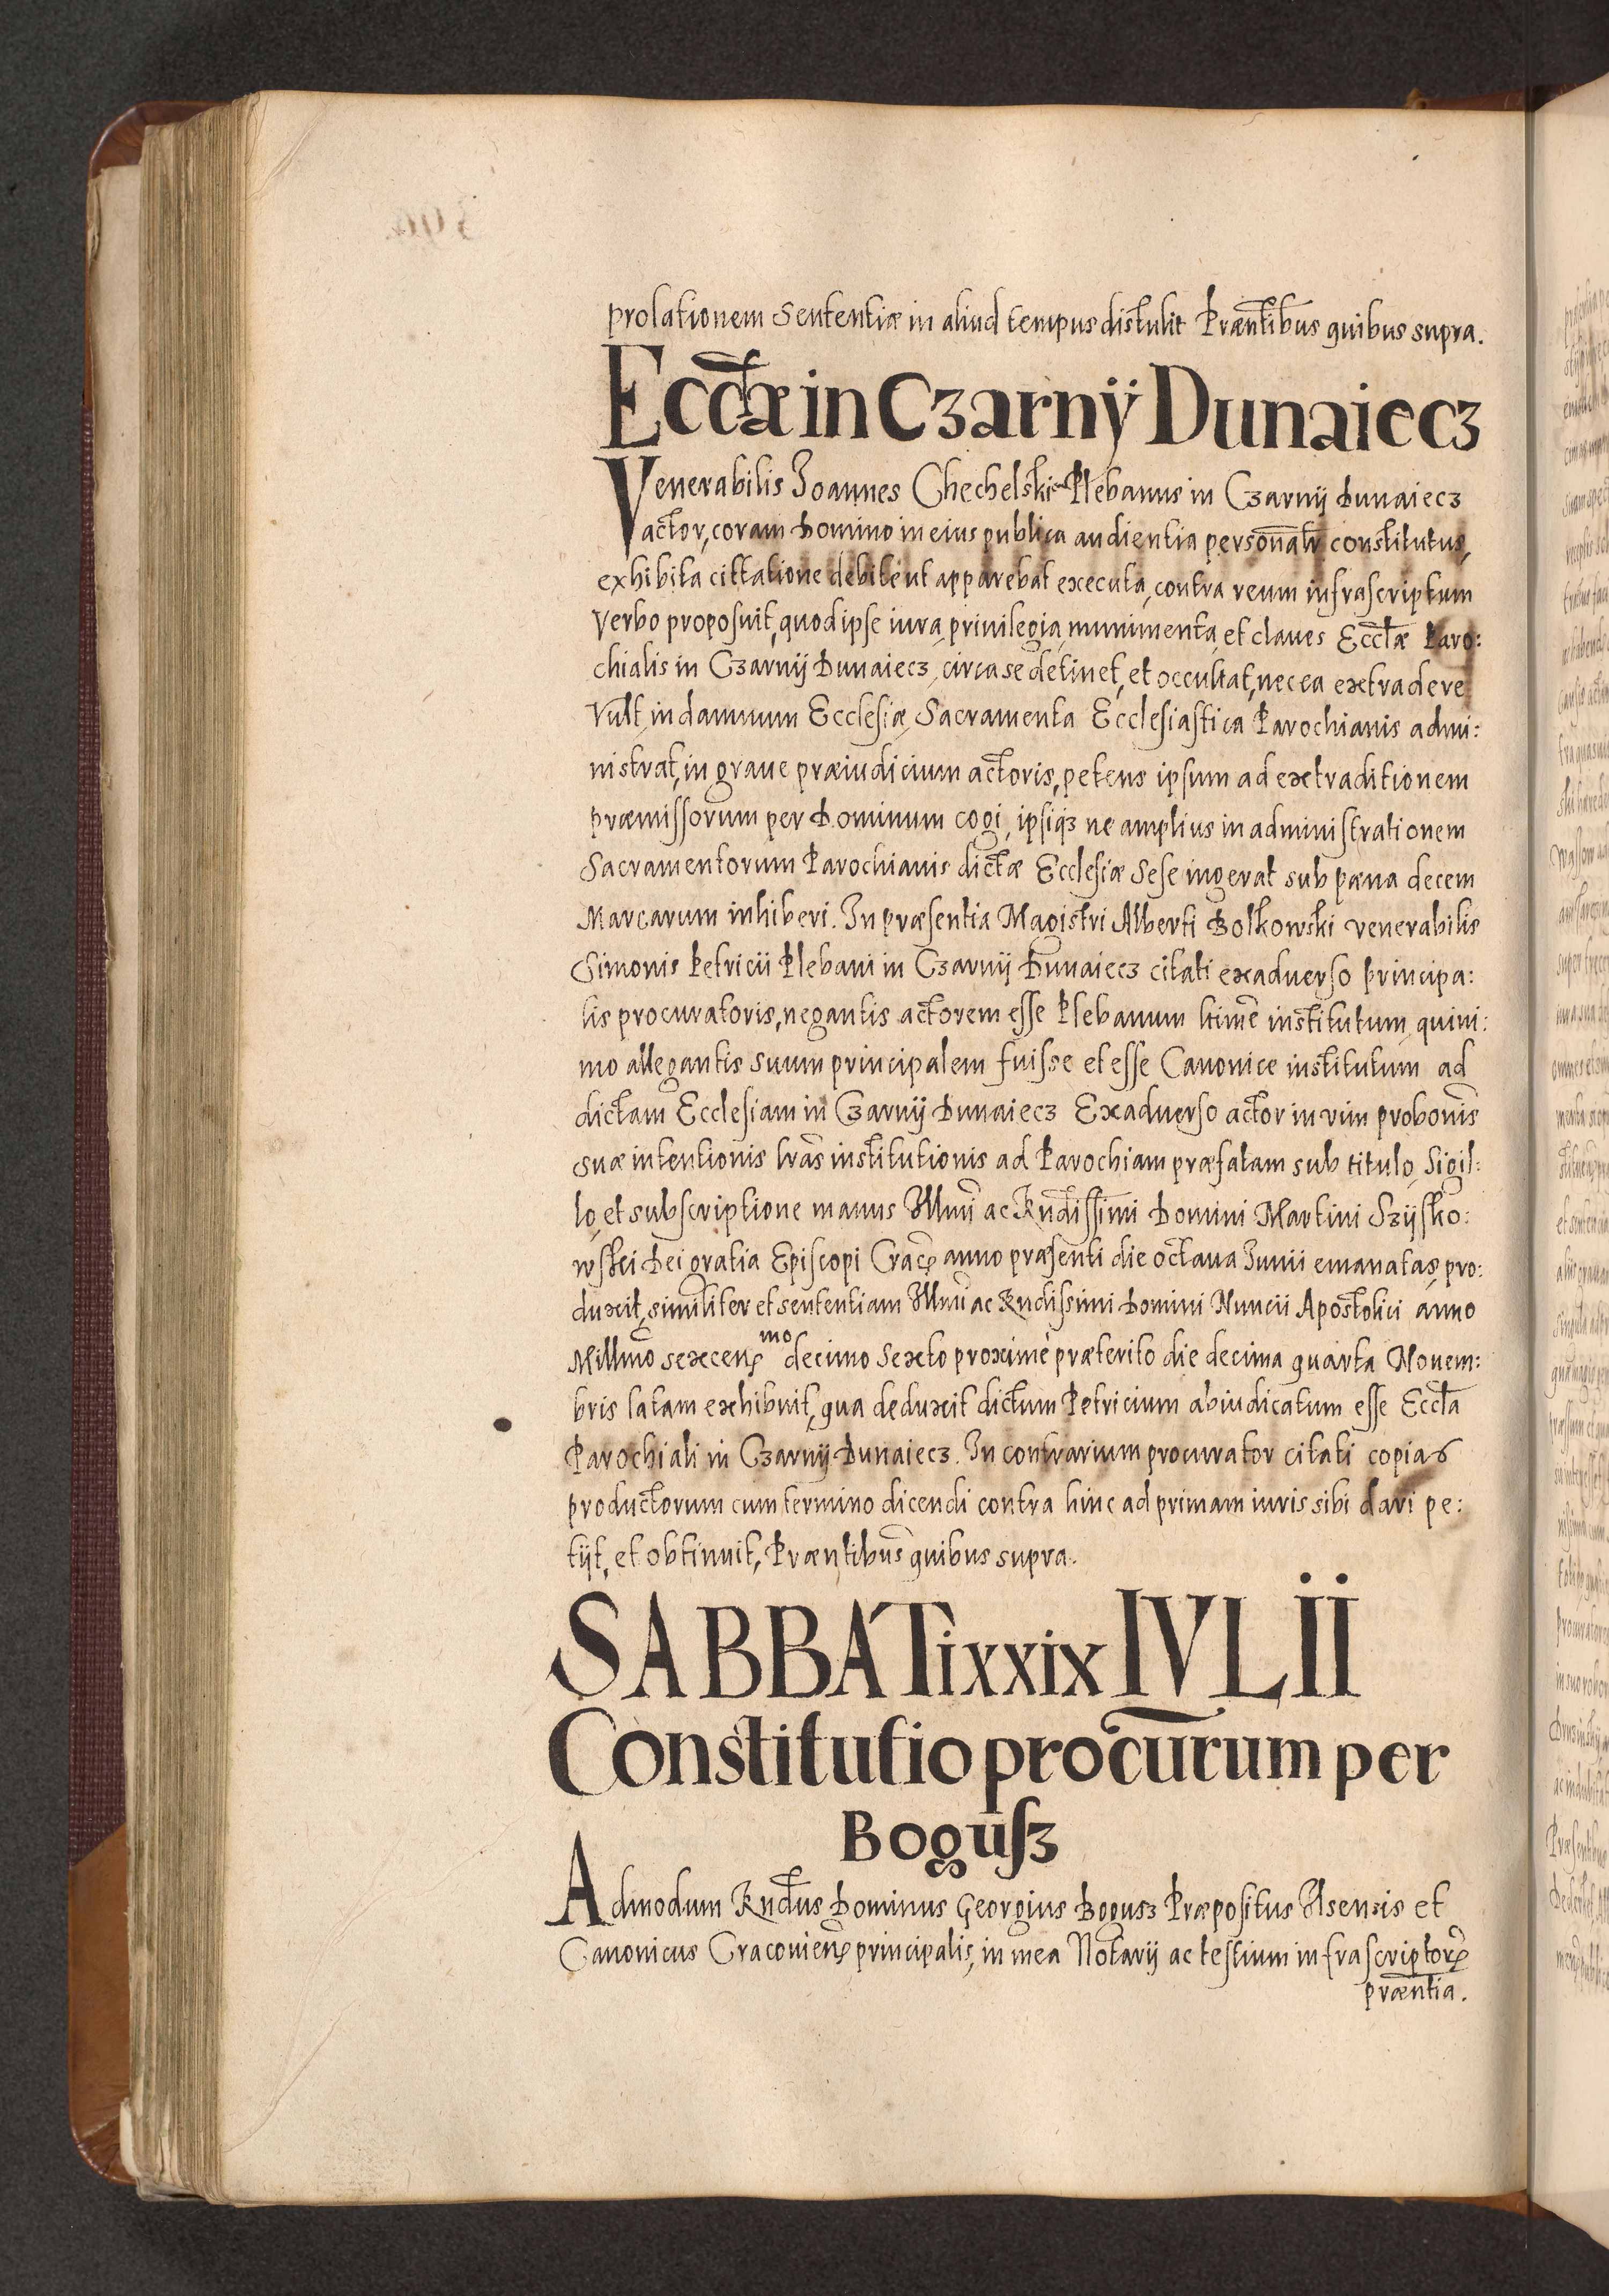 prolationem Sententiæ in aliud tempus distulit Præntibus quibus supra.
Ecclæ in Czarnÿ Dunaiecz
Venerabilis Joannes Chechelski Plebanus in Czarnij Dunaiecz
actor, coram Domino in eius publica audientia personalr constitutus,
exhibita cittatione debite ut apparebat executa, contra reum infrascriptum
Verbo proposuit, quod ipse iura, privilegia, munimenta, et claues Ecclæ Paro:
chialis in Czarnij Dunaiecz, circa se detinet, et occultat, nec ea extradere
Vult in damnum Ecclesiæ Sacramenta Ecclesiastica Parochianis admi:
nistrat, in graue præiudicium actoris, petens ipsum ad extraditionem
præmissorum per Dominum cogi, ipsiq3 ne amplius in administrationem
Sacramentorum Parochianis dictæ Ecclesiæ Sese ingerat sub pæna decem
Marcarum inhiberi. In præsentia Magistri Alberti Bolkowski venerabilis
Simonis Petricii Plebani in Czarnij Dunaiecz citati exaduerso principa:
lis procuratoris, negantis actorem esse Plebanum ltimè institutum, quini:
mo allegantis suum principalem fuisse et esse Canonice institutum ad
dictam Ecclesiam in Czarnij Dunaiecz Exaduerso actor in vim probonis
suæ intentionis lras institutionis ad Parochiam præfatam sub titulo, Sigil:
lo, et subscriptione manus Illmi ac Rndissimi Domini Martini Szijsko:
wski Dei gratia Episcopi Cracen anno præsenti die octaua Junii emanatas, pro:
duxit, similiter et sententiam Illmi ac Rndissimi Domini Nuncii Apostolici anno
Millmo sexcenmo decimo Sexto proximè præterito die decima quarta Nouem:
bris latam exhibuit, qua deduxit dictum Petricium abiudicatum esse Eccla
Parochiali in Czarnij Dunaiecz. In contrarium procurator citati copias
productorum cum termino dicendi contra hinc ad primam iuris sibi dari pe:
tijt, et obtinuit, Præntibus quibus supra.
SABBATi xxix IVLII
Constitutio procurum per
Bogusz
Admodum Rndus Dominus Georgius Bogusz Præpositus Ilsensis et
Canonicus Cracouien principalis, in mea Notarij ac testium infrascriptor
præntia.